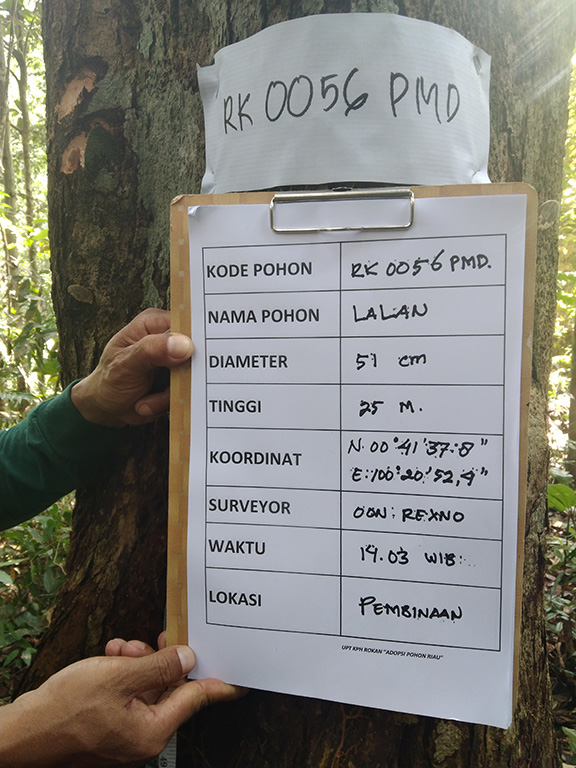 RK 0056 PMD
KODE POHON RK 0056 PMD.
NAMA POHON LALAN
DIAMETER 51 cm
TINGGI 25 M.
KOORDINAT N: 00°41'37.8"
E: 100°20'52,4"
SURVEYOR OON: REXNO
WAKTU 14.03 WIB:
LOKASI PEMBINAAN
UPT KPH ROKAN "ADOPSI POHON RIAU"